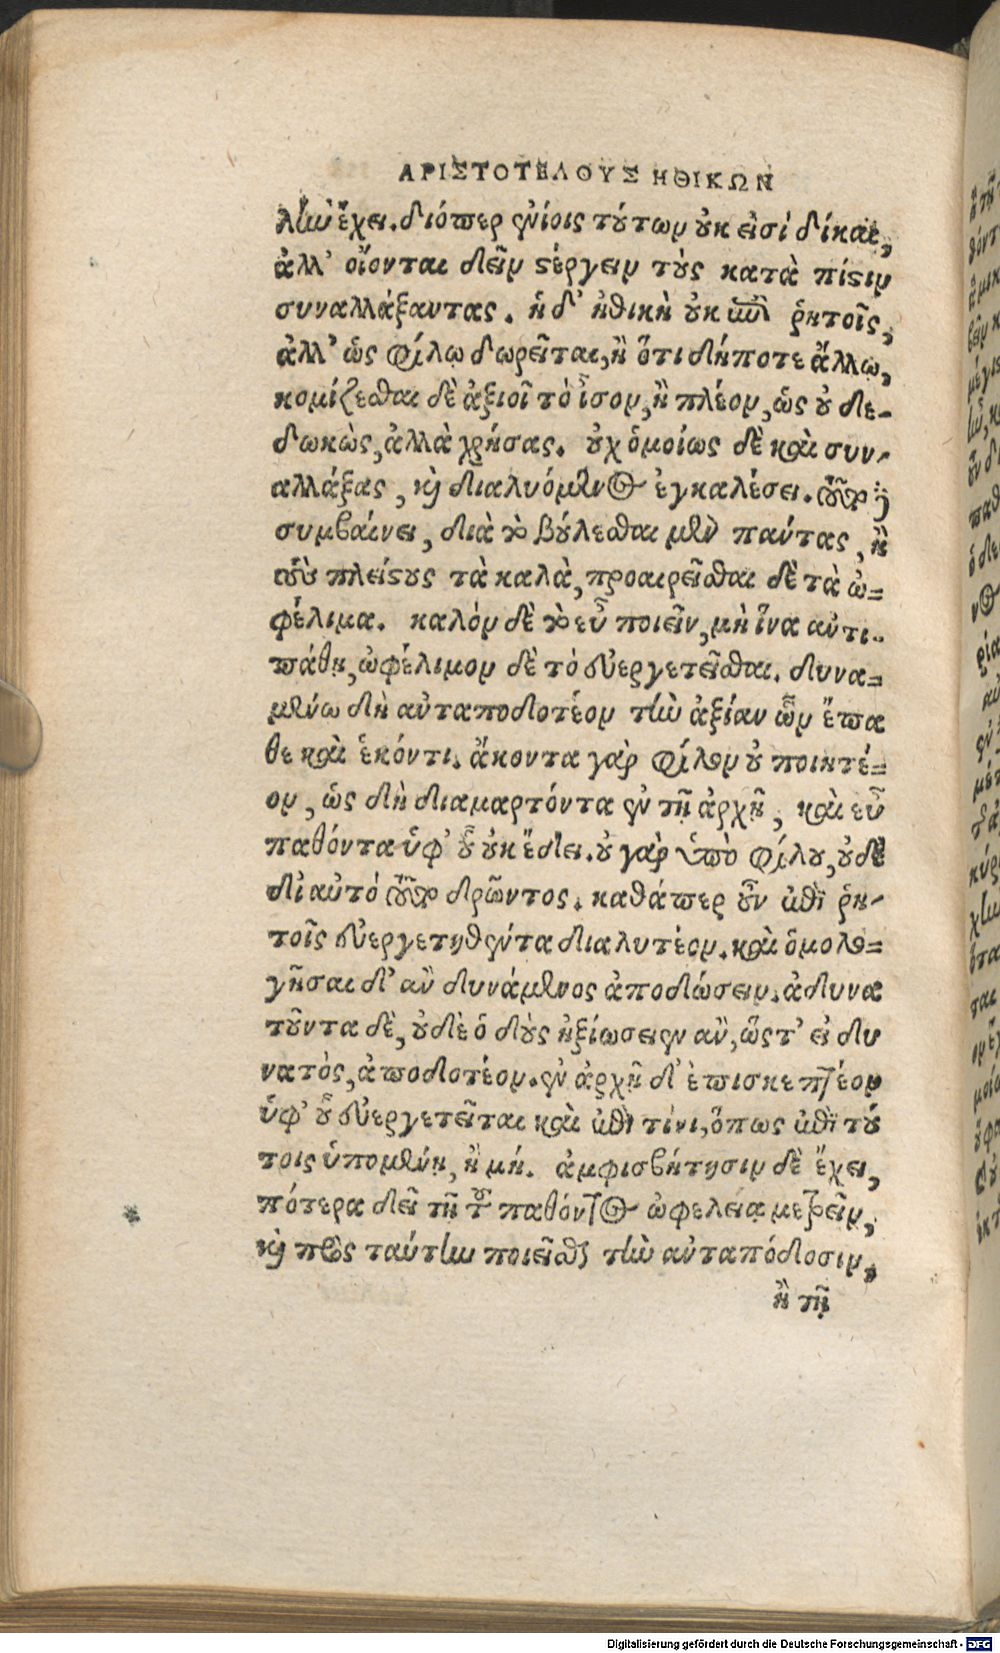 ΑΡΙΣΤΟΤΕΛΟΥΣ ΗΘΙΚΩΝ
λὴν ἔχει. διόπερ ἐνίοις τούτων οὐκ εἰσὶ δίκαι,
ἀλλ' οἴονται δεῖν στέργειν τοὺς κατὰ πίστιν
συναλλάξαντας. ἡ δ' ἠθικὴ οὐκ ἐπὶ ῥητοῖς,
ἀλλ' ὡς φίλῳ δωρεῖται, ἢ ὅτι δήποτε ἄλλῳ,
κομίζεσθαι δὲ ἀξιοῖ τὸ ἶσον, ἢ πλέον, ὡς οὐ δε-
δωκὼς, ἀλλὰ χρήσας. οὐχ ὁμοίως δὲ καὶ συν-
αλλάξας, καὶ διαλυόμενος ἐγκαλέσει. τοῦτο δὲ
συμβαίνει, διὰ τὸ βούλεσθαι μὲν πάντας, ἢ
τοὺς πλείστους τὰ καλὰ, προαιρεῖσθαι δὲ τὰ ὠ-
φέλιμα. καλὸν δὲ τὸ εὖ ποιεῖν, μὴ ἵνα ἀντι-
πάθῃ, ὠφέλιμον δὲ τὸ εὐεργετεῖσθαι. δυνα-
μένῳ δὴ ἀνταποδοτέον τὴν ἀξίαν ὧν ἔπα
θε καὶ ἑκόντι. ἄκοντα γὰρ φίλον οὐ ποιητέ-
ον, ὡς δὴ διαμαρτόντα ἐν τῇ ἀρχῇ, καὶ εὖ
παθόντα ὑφ' οὗ οὐκ ἔδει. οὐ γὰρ ὑπὸ φίλου, οὐδὲ
δι' αὐτὸ τοῦτο δρῶντος. καθάπερ οὖν ἐπὶ ῥη-
τοῖς εὐεργετηθέντα διαλυτέον. καὶ ὁμολο-
γῆσαι δ' ἂν δυνάμενος ἀποδώσειν. ἀδυνα
τοῦντα δὲ, οὐδὲ ὁ δοὺς ἠξίωσειεν ἂν, ὥστ' εἰ δυ
νατὸς, ἀποδοτέον. ἐν ἀρχῇ δ' ἐπισκεπτέον
ὑφ' οὗ εὐεργετεῖται καὶ ἐπὶ τίνι, ὅπως ἐπὶ τού
τοις ὑπομένῃ, ἢ μή. ἀμφισβήτησιν δὲ ἔχει,
πότερα δεῖ τῇ τοῦ παθόντος ὠφελείᾳ μετρεῖν,
καὶ πρὸς ταύτην ποιεῖσθαι τὴν ἀνταπόδοσιν,
ἢ τῇ
Digitalisierung gefördert durch die Deutsche Forschungsgemeinschaft - DFG